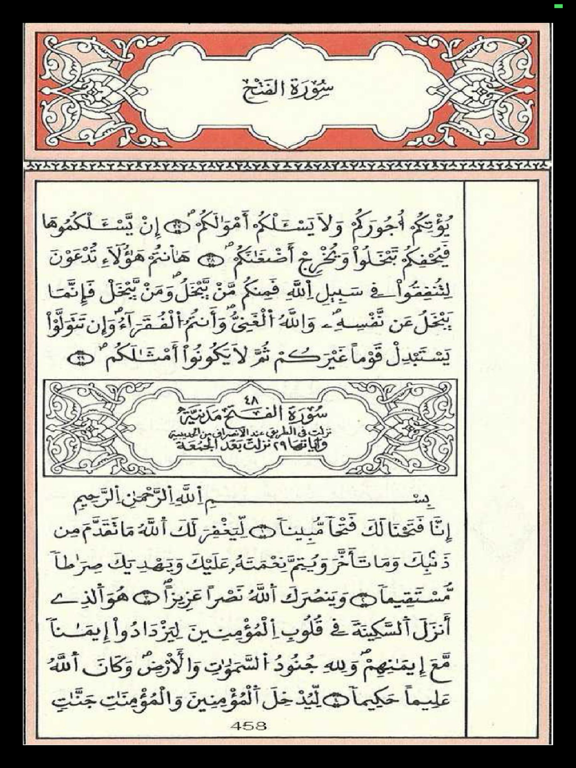 سُورَةُ الفَتْحِ
يُؤْتِكُمُۥٓ أُجُورَكُمْ وَلَا يَسْـَٔلْكُمُۥٓ أَمْوَٰلَكُمُۥٓ إِنْ يَّسْـَٔلْكُمُوهَا
فَيُحْفِكُمْ تَبْخَلُواْ وَيُخْرِجَ اَضْغَٰنَكُمْ هَٰأَنتُمْ هَٰؤُلَآءِ تُدْعَوْنَ
لِتُنفِقُواْ فِى سَبِيلِ اِ۬للَّهِ فَمِنكُم مَّنْ يَّبْخَلُ وَمَنْ يَّبْخَلْ فَإِنَّمَا
يَبْخَلُ عَن نَّفْسِهِۦ وَاللَّهُ اُ۬لْغَنِىُّ وَأَنتُمُ اُ۬لْفُقَرَآءُ وَإِن تَتَوَلَّوْاْ
يَسْتَبْدِلْ قَوْماً غَيْرَكُمْ ثُمَّ لَا يَكُونُواْ أَمْثَٰلَكُم
٤٨
سُورَةُ الفَتْحِ مَدَنِيَّة
نزلت في الطريق عند الانصراف من الحديبية
وآياتها ٢٩ نزلت بعد الجمعة
بِسْمِ اِ۬للَّهِ اِ۬لرَّحْمَٰنِ اِ۬لرَّحِيمِ
إِنَّا فَتَحْنَا لَكَ فَتْحاً مُّبِيناً لِّيَغْفِرَ لَكَ اَ۬للَّهُ مَا تَقَدَّمَ مِن
ذَنۢبِكَ وَمَا تَأَخَّرَ وَيُتِمَّ نِعْمَتَهُۥ عَلَيْكَ وَيَهْدِيَكَ صِرَٰطاً
مُّسْتَقِيماً وَيَنصُرَكَ اَ۬للَّهُ نَصْراً عَزِيزاً هُوَ اَ۬لذِے
أَنزَلَ اَ۬لسَّكِينَةَ فِى قُلُوبِ اِ۬لْمُؤْمِنِينَ لِيَزْدَادُواْ إِيمَٰناً
مَّعَ إِيمَٰنِهِمْ وَلِلهِ جُنُودُ اُ۬لسَّمَٰوَٰتِ وَالْأَرْضِ وَكَانَ اَ۬للَّهُ
عَلِيماً حَكِيماً لِّيُدْخِلَ اَ۬لْمُؤْمِنِينَ وَالْمُؤْمِنَٰتِ جَنَّٰتٍ
458